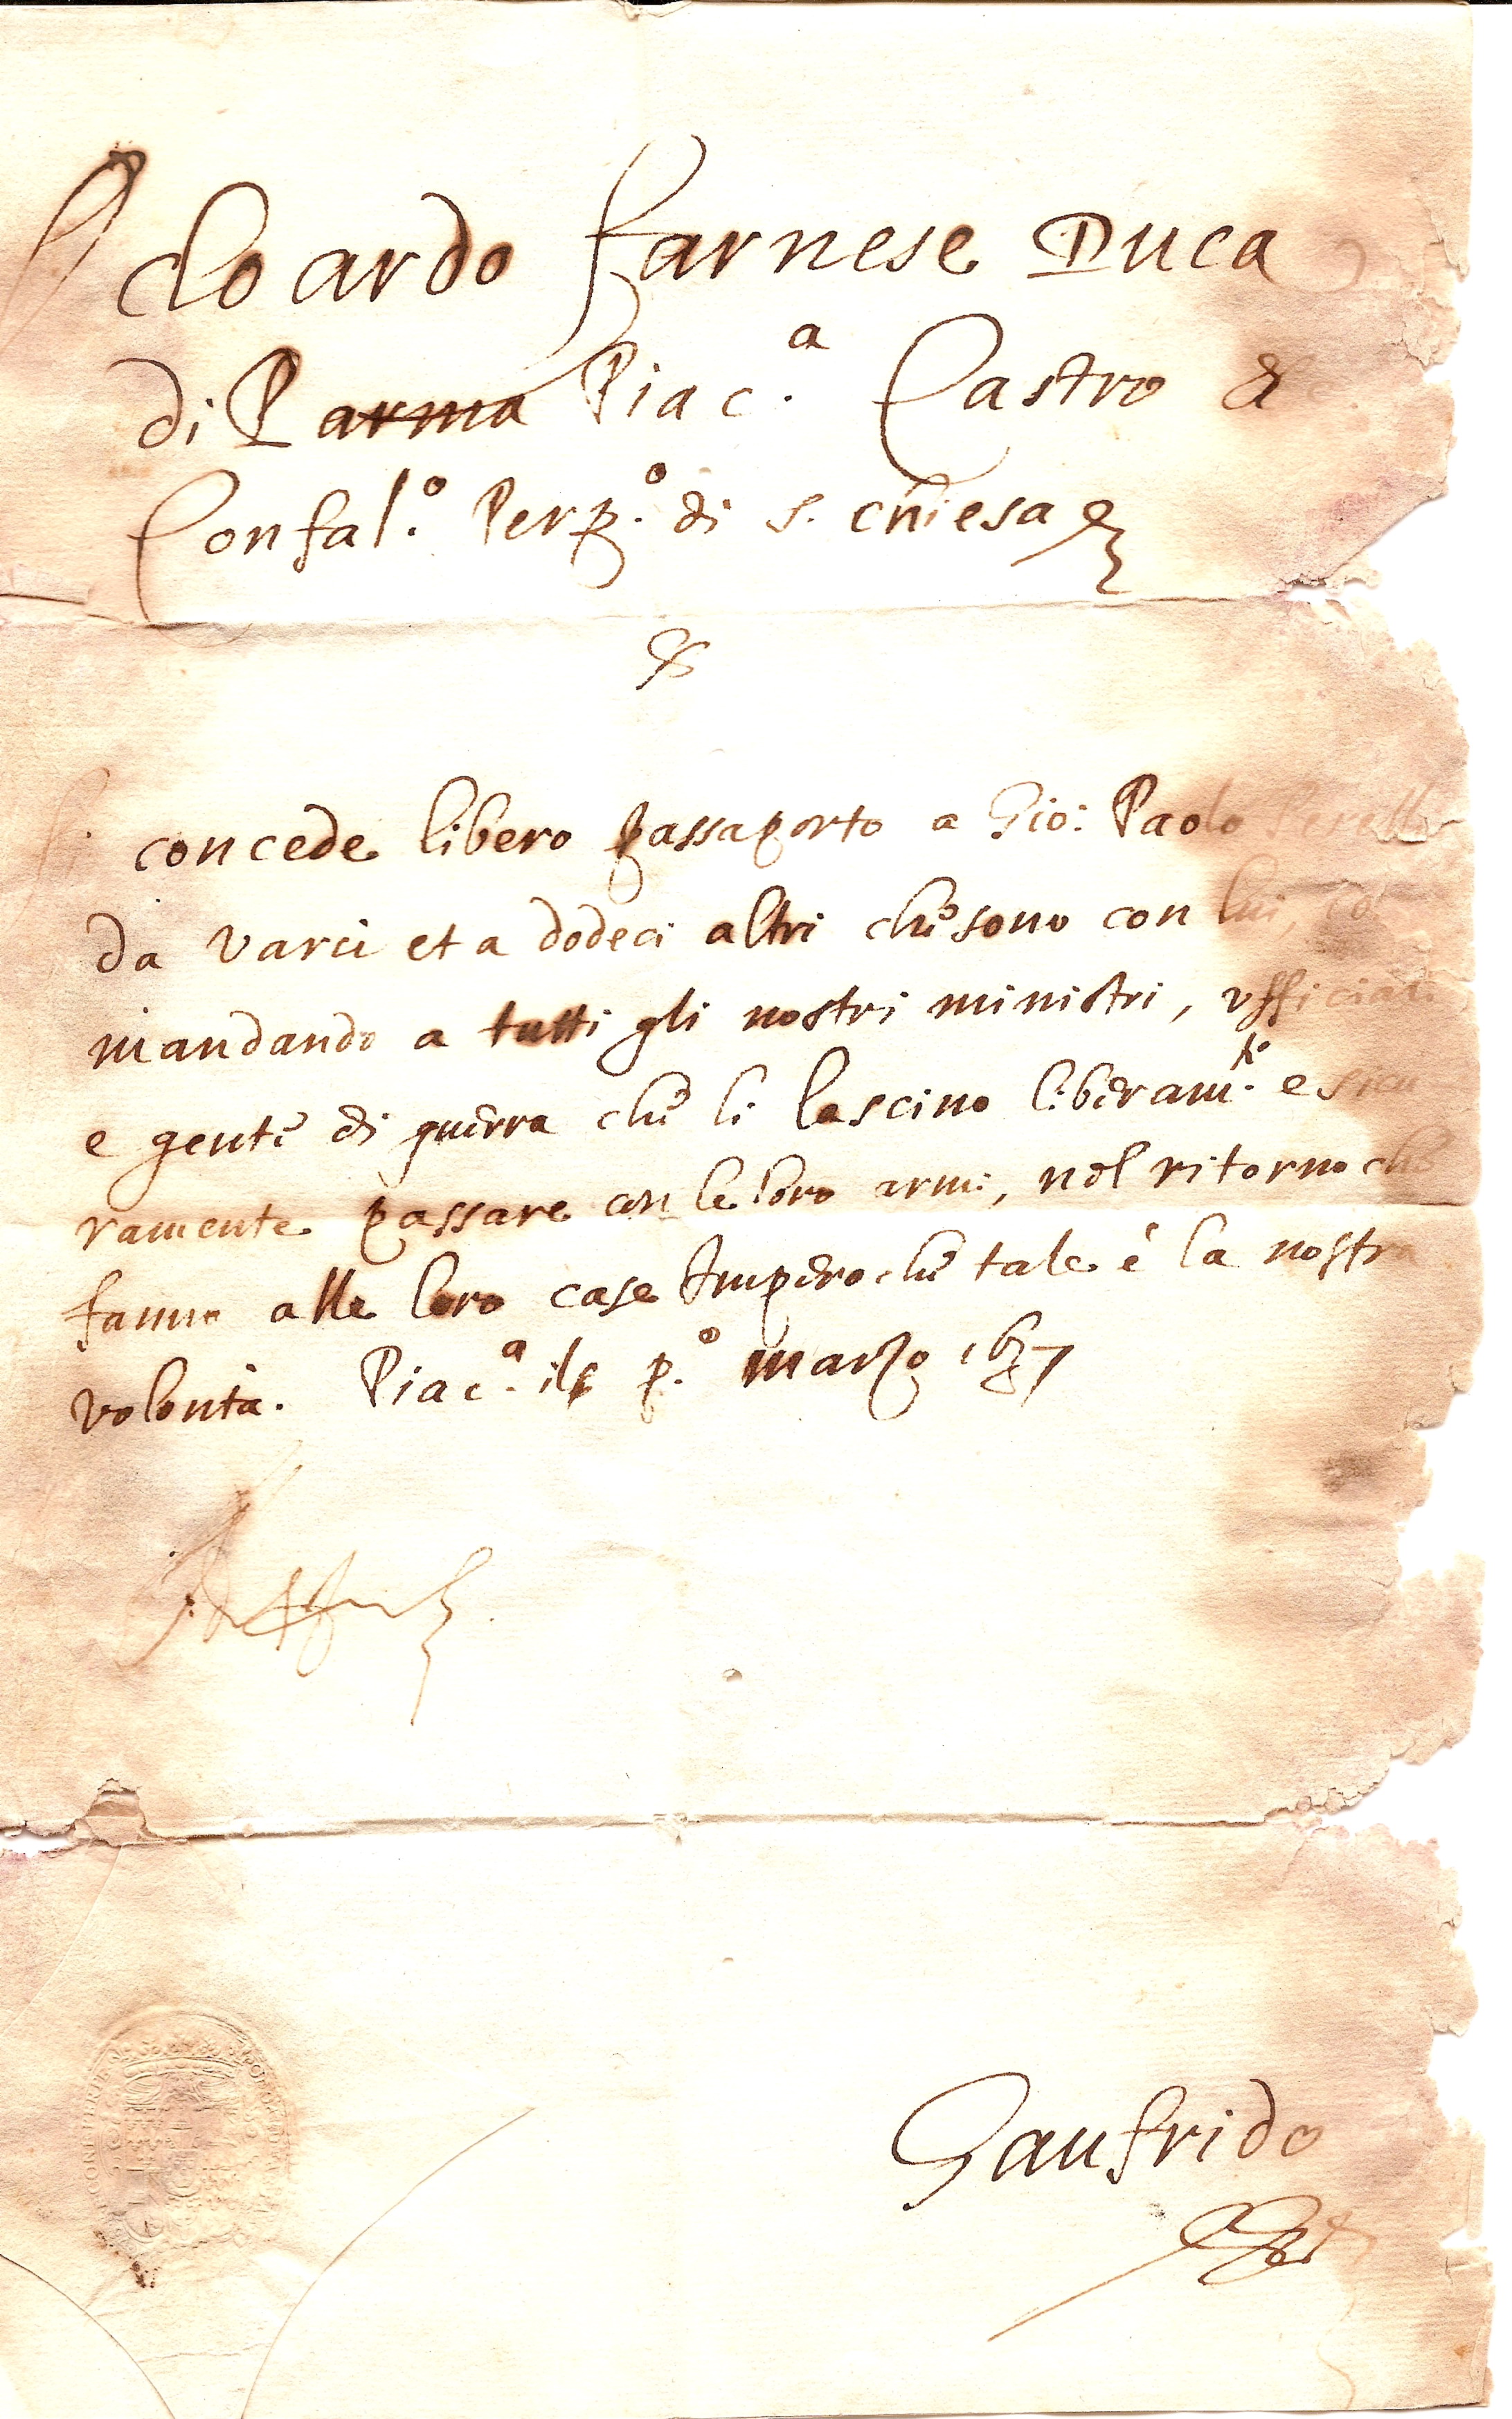 Odoardo Farnese Duca
di Parma Piac.ª Castro &
Confal.º Perp.º di S. Chiesa &
&
Si concede libero passaporto a Gio: Paolo
da Varci et a dodeci altri che sono con lui, co
mandando a tutti gli nostri ministri, ufficiali
e gente di guerra che li lascino liberam.te e sicu
ramente passare con le loro armi, nel ritorno che
fanno alle loro case Imperoche tale è la nostra
volontà. Piac.ª il p.º marzo 1637
Gaufrido